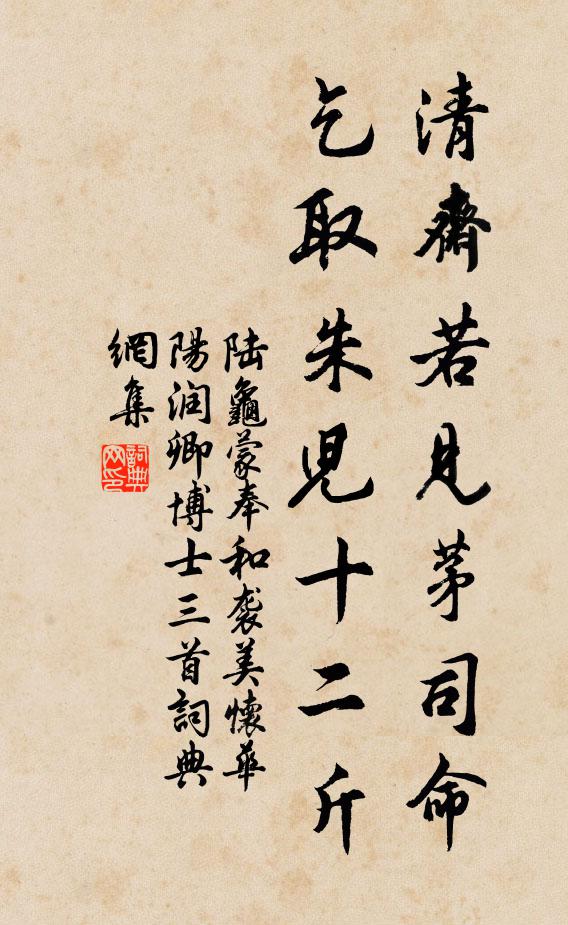 清齋若見茅司命
乞取朱兒十二斤
陆龜蒙奉和袭美懷華
陽润卿博士三首詞典
網集
詞典網印